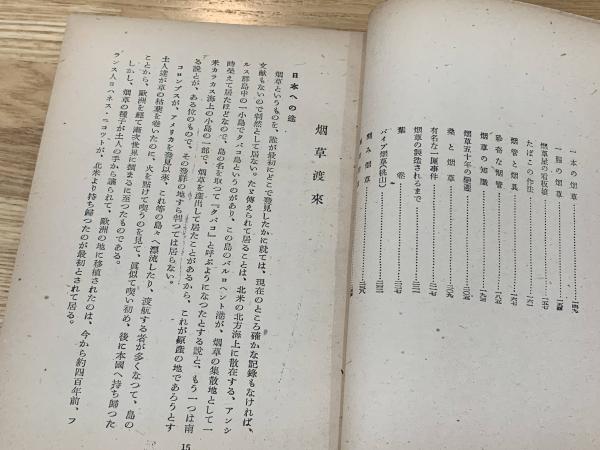 一本の烟草……一四九
一服の烟草
烟草屋の看板娘
たばこの作法
烟管と烟具……一六七
珍奇な烟管……一八五
烟草の知識……一九三
烟草五十年の變遷……二〇五
桑と烟草……二〇九
有名な二匣事件……二一七
烟草の製造されるまで
葉卷
パイプ烟草
刻み烟草
烟草渡來
日本への途
烟草というものを、誰が最初にどこで發見したかに就ては、現在のところ確かな記錄もなければ、
文献もないので判然として居ない。たゞ傳えられて居ることは、北米の北方海上に散在する、アンシ
ルス群島中の一小島でタバコ島というのがあり、この島のバルロヘント港が、烟草の集散地として一
時榮えて居たほどなので、島の名を取つて『タバコ』と呼ぶようになつたとする說と、もう一つは南
米カラカス海上の小島の一部で、烟草を產出して居たことがあるから、これが原產の地であろうとす
る說とが、ある位のもので、その發祥の地すら判つては居らない。
コロンブスが、アメリカを發見以來、これ等の島々へ漂流したり、渡航する者が多くなつて、島の
土人達が草の枯葉を卷いたのに、火を點けて喫うのを見て、眞似て喫い初め、後に本國へ持ち歸つた
ことから、歐洲を經て漸次世界に擴まるに至つたものである。
しかし、烟草の種子が土人の手から讓られて、歐洲の地に移植されたのは、今から約四百年前、フ
ランス人ヨハネス・ニコットが、北米より持ち歸つたのが最初とされて居る。
15